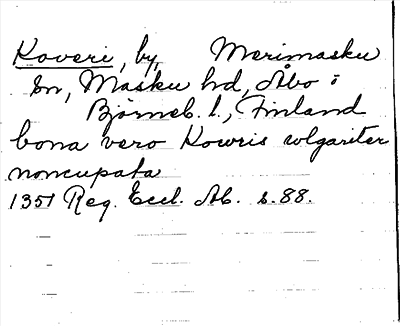 Koveri, by, Merimasku
sn, Masku hd, Åbo o
Björneb. l., Finland
bona vero Kowris wlgariter
noncupata
1351 Reg. Eccl. Ab. s. 88.